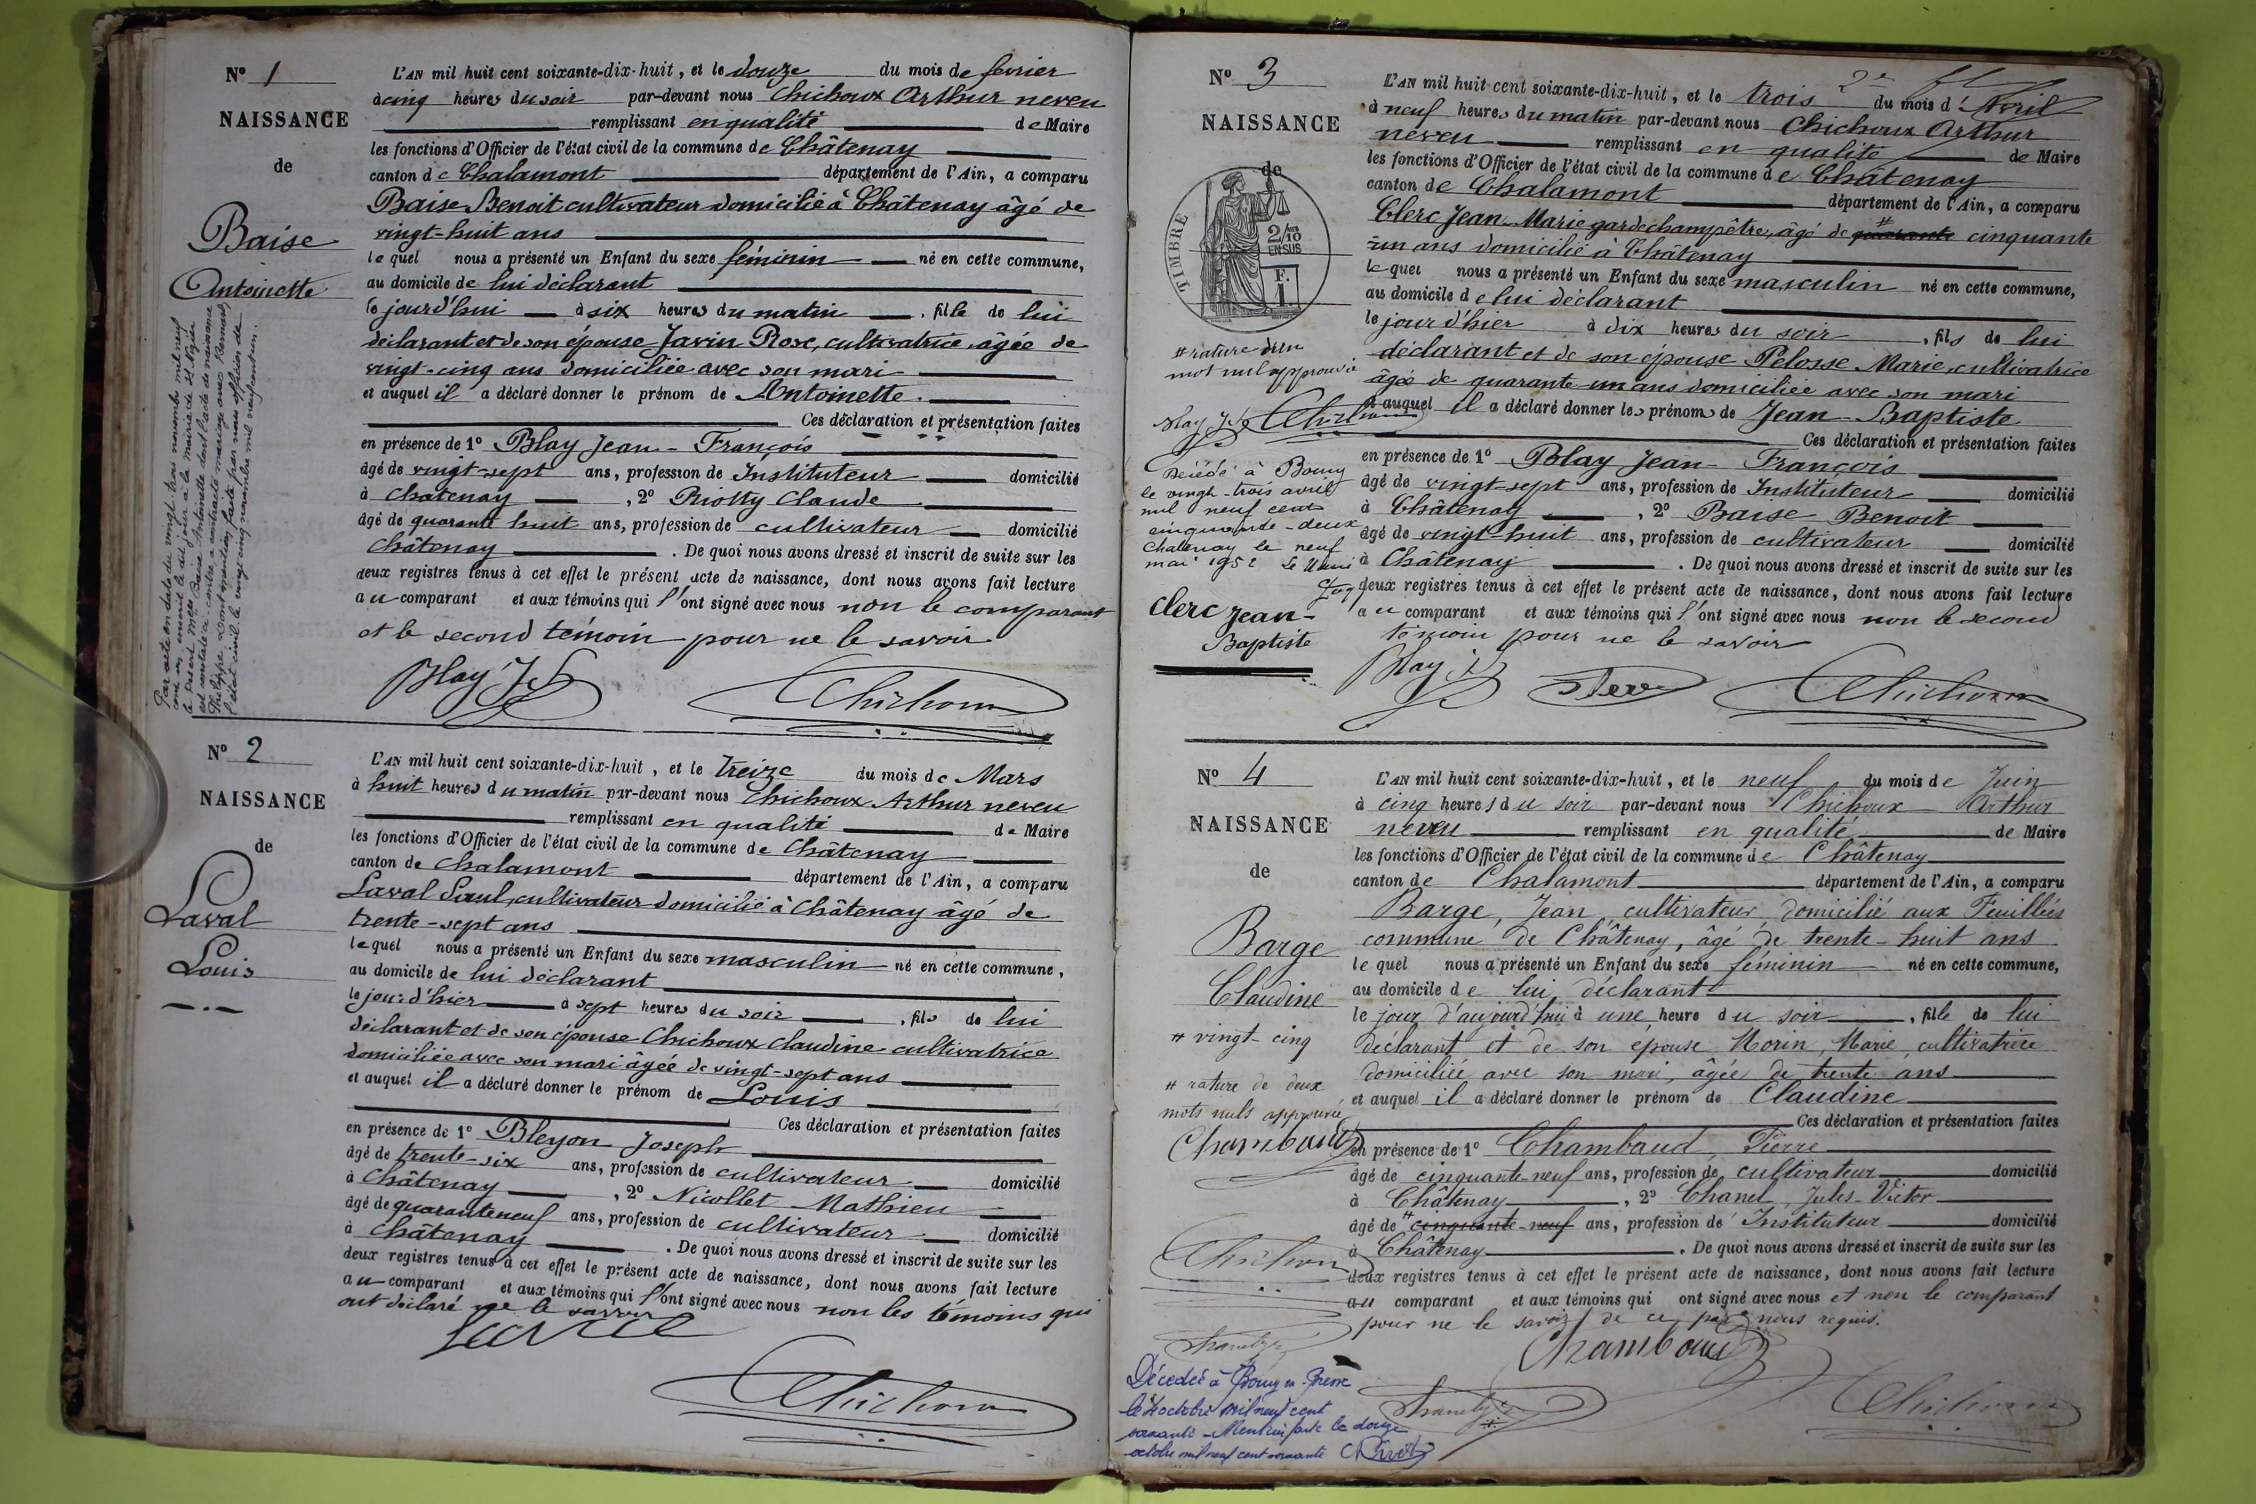 N° 1
NAISSANCE
de
Baise
Antoinette
Par acte en date du vingt-trois novembre mil neuf
le présent Melle Baise Antoinette dont l'acte de naissance
est constaté ci-contre, a contracté mariage avec Bernard
Philippe. Dont mention faite par nous officier de
l'état civil le vingt cinq novembre mil neuf cent un.
L'AN mil huit cent soixante-dix-huit, et le douze du mois de février
à cinq heures du soir par-devant nous Chichoux Arthur neveu
remplissant en qualité de Maire
les fonctions d'Officier de l'état civil de la commune de Châtenay
canton de Chalamont département de l'Ain, a comparu
Baise Benoit cultivateur domicilié à Châtenay âgé de
vingt-huit ans
lequel nous a présenté un Enfant du sexe féminin né en cette commune,
au domicile de lui déclarant
le jourd'hui à six heures du matin, fille de lui
déclarant et de son épouse Javin Rose, cultivatrice âgée de
vingt-cinq ans domiciliée avec son mari
et auquel il a déclaré donner le prénom de Antoinette.
Ces déclaration et présentation faites
en présence de 1° Blay Jean-François
âgé de vingt-sept ans, profession de Instituteur domicilié
à Châtenay, 2° Riotty Claude
âgé de quarante huit ans, profession de cultivateur domicilié
Châtenay. De quoi nous avons dressé et inscrit de suite sur les
deux registres tenus à cet effet le présent acte de naissance, dont nous avons fait lecture
au comparant et aux témoins qui l'ont signé avec nous non le comparant
et le second témoin pour ne le savoir
Blay J. F. Chichoux
N° 2
NAISSANCE
de
Laval
Louis
L'AN mil huit cent soixante-dix-huit, et le treize du mois de Mars
à huit heures du matin par-devant nous Chichoux Arthur neveu
remplissant en qualité de Maire
les fonctions d'Officier de l'état civil de la commune de Châtenay
canton de Chalamont département de l'Ain, a comparu
Laval Paul, cultivateur domicilié à Châtenay âgé de
trente-sept ans
lequel nous a présenté un Enfant du sexe masculin né en cette commune,
au domicile de lui déclarant
le jour d'hier à sept heures du soir, fils de lui
déclarant et de son épouse Chichoux Claudine cultivatrice
domiciliée avec son mari âgée de vingt-sept ans
et auquel il a déclaré donner le prénom de Louis
Ces déclaration et présentation faites
en présence de 1° Bleyon Joseph
âgé de trente-six ans, profession de cultivateur domicilié
à Châtenay, 2° Nicollet Mathieu
âgé de quarante neuf ans, profession de cultivateur domicilié
à Châtenay. De quoi nous avons dressé et inscrit de suite sur les
deux registres tenus à cet effet le présent acte de naissance, dont nous avons fait lecture
au comparant et aux témoins qui l'ont signé avec nous non les témoins qui
ont déclaré ne le savoir
Laval
Chichoux
N° 3
NAISSANCE
de
TIMBRE
2/10
EN SUS
F.
1.
# rature d'un
mot nul approuvée
Blay J. F. Chichoux
Décédé à Bourg
le vingt-trois avril
mil neuf cent
cinquante-deux
Chatenay le neuf
mai 1952 Le Maire
Clerc Jean-
Baptiste
2e
L'AN mil huit cent soixante-dix-huit, et le trois du mois d'Avril
à neuf heures du matin par-devant nous Chichoux Arthur
neveu remplissant en qualité de Maire
les fonctions d'Officier de l'état civil de la commune de Châtenay
canton de Chalamont département de l'Ain, a comparu
Clerc Jean-Marie garde champêtre, âgé de # quarante cinquante
-un ans domicilié à Châtenay
lequel nous a présenté un Enfant du sexe masculin né en cette commune,
au domicile de lui déclarant
le jour d'hier à dix heures du soir, fils de lui
déclarant et de son épouse Pelosse Marie, cultivatrice
âgée de quarante-un ans domiciliée avec son mari
et auquel il a déclaré donner les prénoms de Jean-Baptiste
Ces déclaration et présentation faites
en présence de 1° Blay Jean-François
âgé de vingt-sept ans, profession de Instituteur domicilié
à Châtenay, 2° Baise Benoit
âgé de vingt-huit ans, profession de cultivateur domicilié
à Châtenay. De quoi nous avons dressé et inscrit de suite sur les
deux registres tenus à cet effet le présent acte de naissance, dont nous avons fait lecture
au comparant et aux témoins qui l'ont signé avec nous non le second
témoin pour ne le savoir
Blay J. F. Clerc Chichoux
N° 4
NAISSANCE
de
Barge
Claudine
# vingt-cinq
# rature de deux
mots nuls approuvée
Chambaud
Chichoux
Décédée à Bourg en Bresse
le 4 octobre mil neuf cent
soixante - Mention faite le douze
octobre mil neuf cent soixante
L'AN mil huit cent soixante-dix-huit, et le neuf du mois de Juin
à cinq heures du soir par-devant nous Chichoux Arthur
neveu remplissant en qualité de Maire
les fonctions d'Officier de l'état civil de la commune de Châtenay
canton de Chalamont département de l'Ain, a comparu
Barge, Jean, cultivateur, domicilié aux Feuillées
commune de Châtenay, âgé de trente-huit ans
lequel nous a présenté un Enfant du sexe féminin né en cette commune,
au domicile de lui déclarant
le jour d'aujourd'hui à une heure du soir, fille de lui
déclarant et de son épouse Morin, Marie, cultivatrice
domiciliée avec son mari, âgée de trente ans
et auquel il a déclaré donner le prénom de Claudine
Ces déclaration et présentation faites
en présence de 1° Chambaud Pierre
âgé de cinquante neuf ans, profession de cultivateur domicilié
à Châtenay, 2° Chanel, Jules-Victor
âgé de # cinquante-neuf ans, profession de Instituteur domicilié
à Châtenay. De quoi nous avons dressé et inscrit de suite sur les
deux registres tenus à cet effet le présent acte de naissance, dont nous avons fait lecture
au comparant et aux témoins qui ont signé avec nous et non le comparant
pour ne le savoir de ce par nous requis.
Chambaud
Chichoux